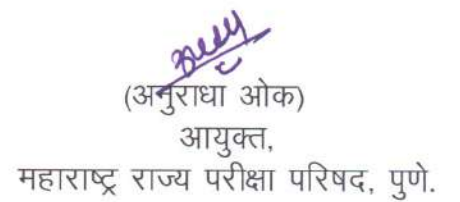 (अनुराधा ओक)
आयुक्त,
महाराष्ट्र राज्य परीक्षा परिषद, पुणे.